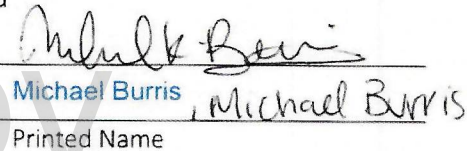 Michael Burris
Michael Burris, Michael Burris
Printed Name